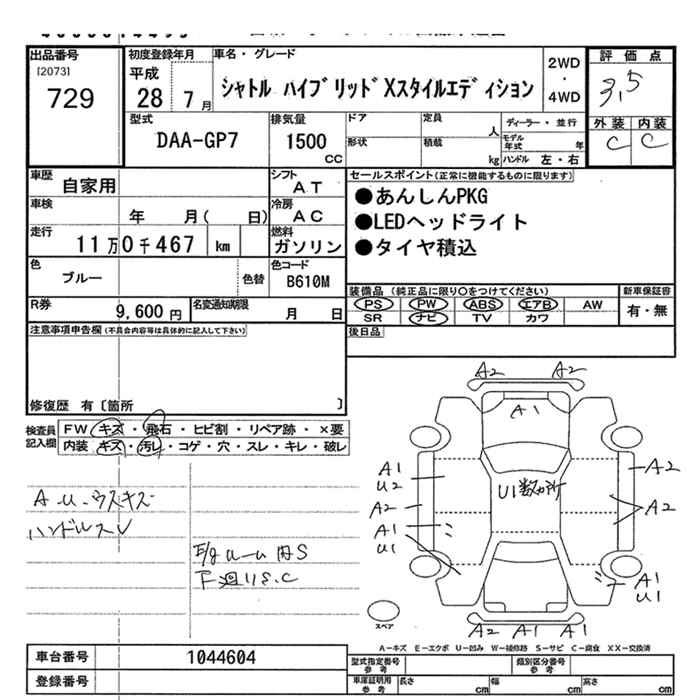 出品番号
[2073]
729
初度登録年月
平成
28 7月
車名・グレード
シャトル ハイブリッドXスタイルエディション
2WD
・
4WD
評価点
3.5
外装 内装
C C
型式
DAA-GP7
排気量
1500
CC
ドア
定員
人
形状
積載
kg
ディーラー・並行
モデル年式
年
ハンドル 左・右
車歴
自家用
シフト
AT
車検
年 月( 日)
冷房
AC
走行
11万0千467 km
燃料
ガソリン
色
ブルー
色替
色コード
B610M
R券
9,600円
名変通知期限
月 日
セールスポイント(正常に機能するものに限ります)
●あんしんPKG
●LEDヘッドライト
●タイヤ積込
装備品 (純正品に限り○をつけてください)
PS PW ABS エアB AW
SR ナビ TV カワ
新車保証書
有・無
後日品
注意事項申告欄(不具合内容等は具体的に記入して下さい)
修復歴 有〔箇所 〕
検査員記入欄
FW キズ・飛石・ヒビ割・リペア跡・×要
内装 キズ・汚レ・コゲ・穴・スレ・キレ・破レ
A.U.ウスキズ
ハンドルスレ
下廻りS.C
A2 A2
A1
A1
U2
A2
A1
U1
U1数ヵ所
A2
A2
A1
U1
A2 A1 A1
スペア
A-キズ E-エクボ U-凹み W-補修跡 S-サビ C-腐食 XX-交換済
車台番号
1044604
登録番号
型式指定番号
参考
類別区分番号
参考
車庫証明用
参考
長さ cm
幅 cm
高さ cm